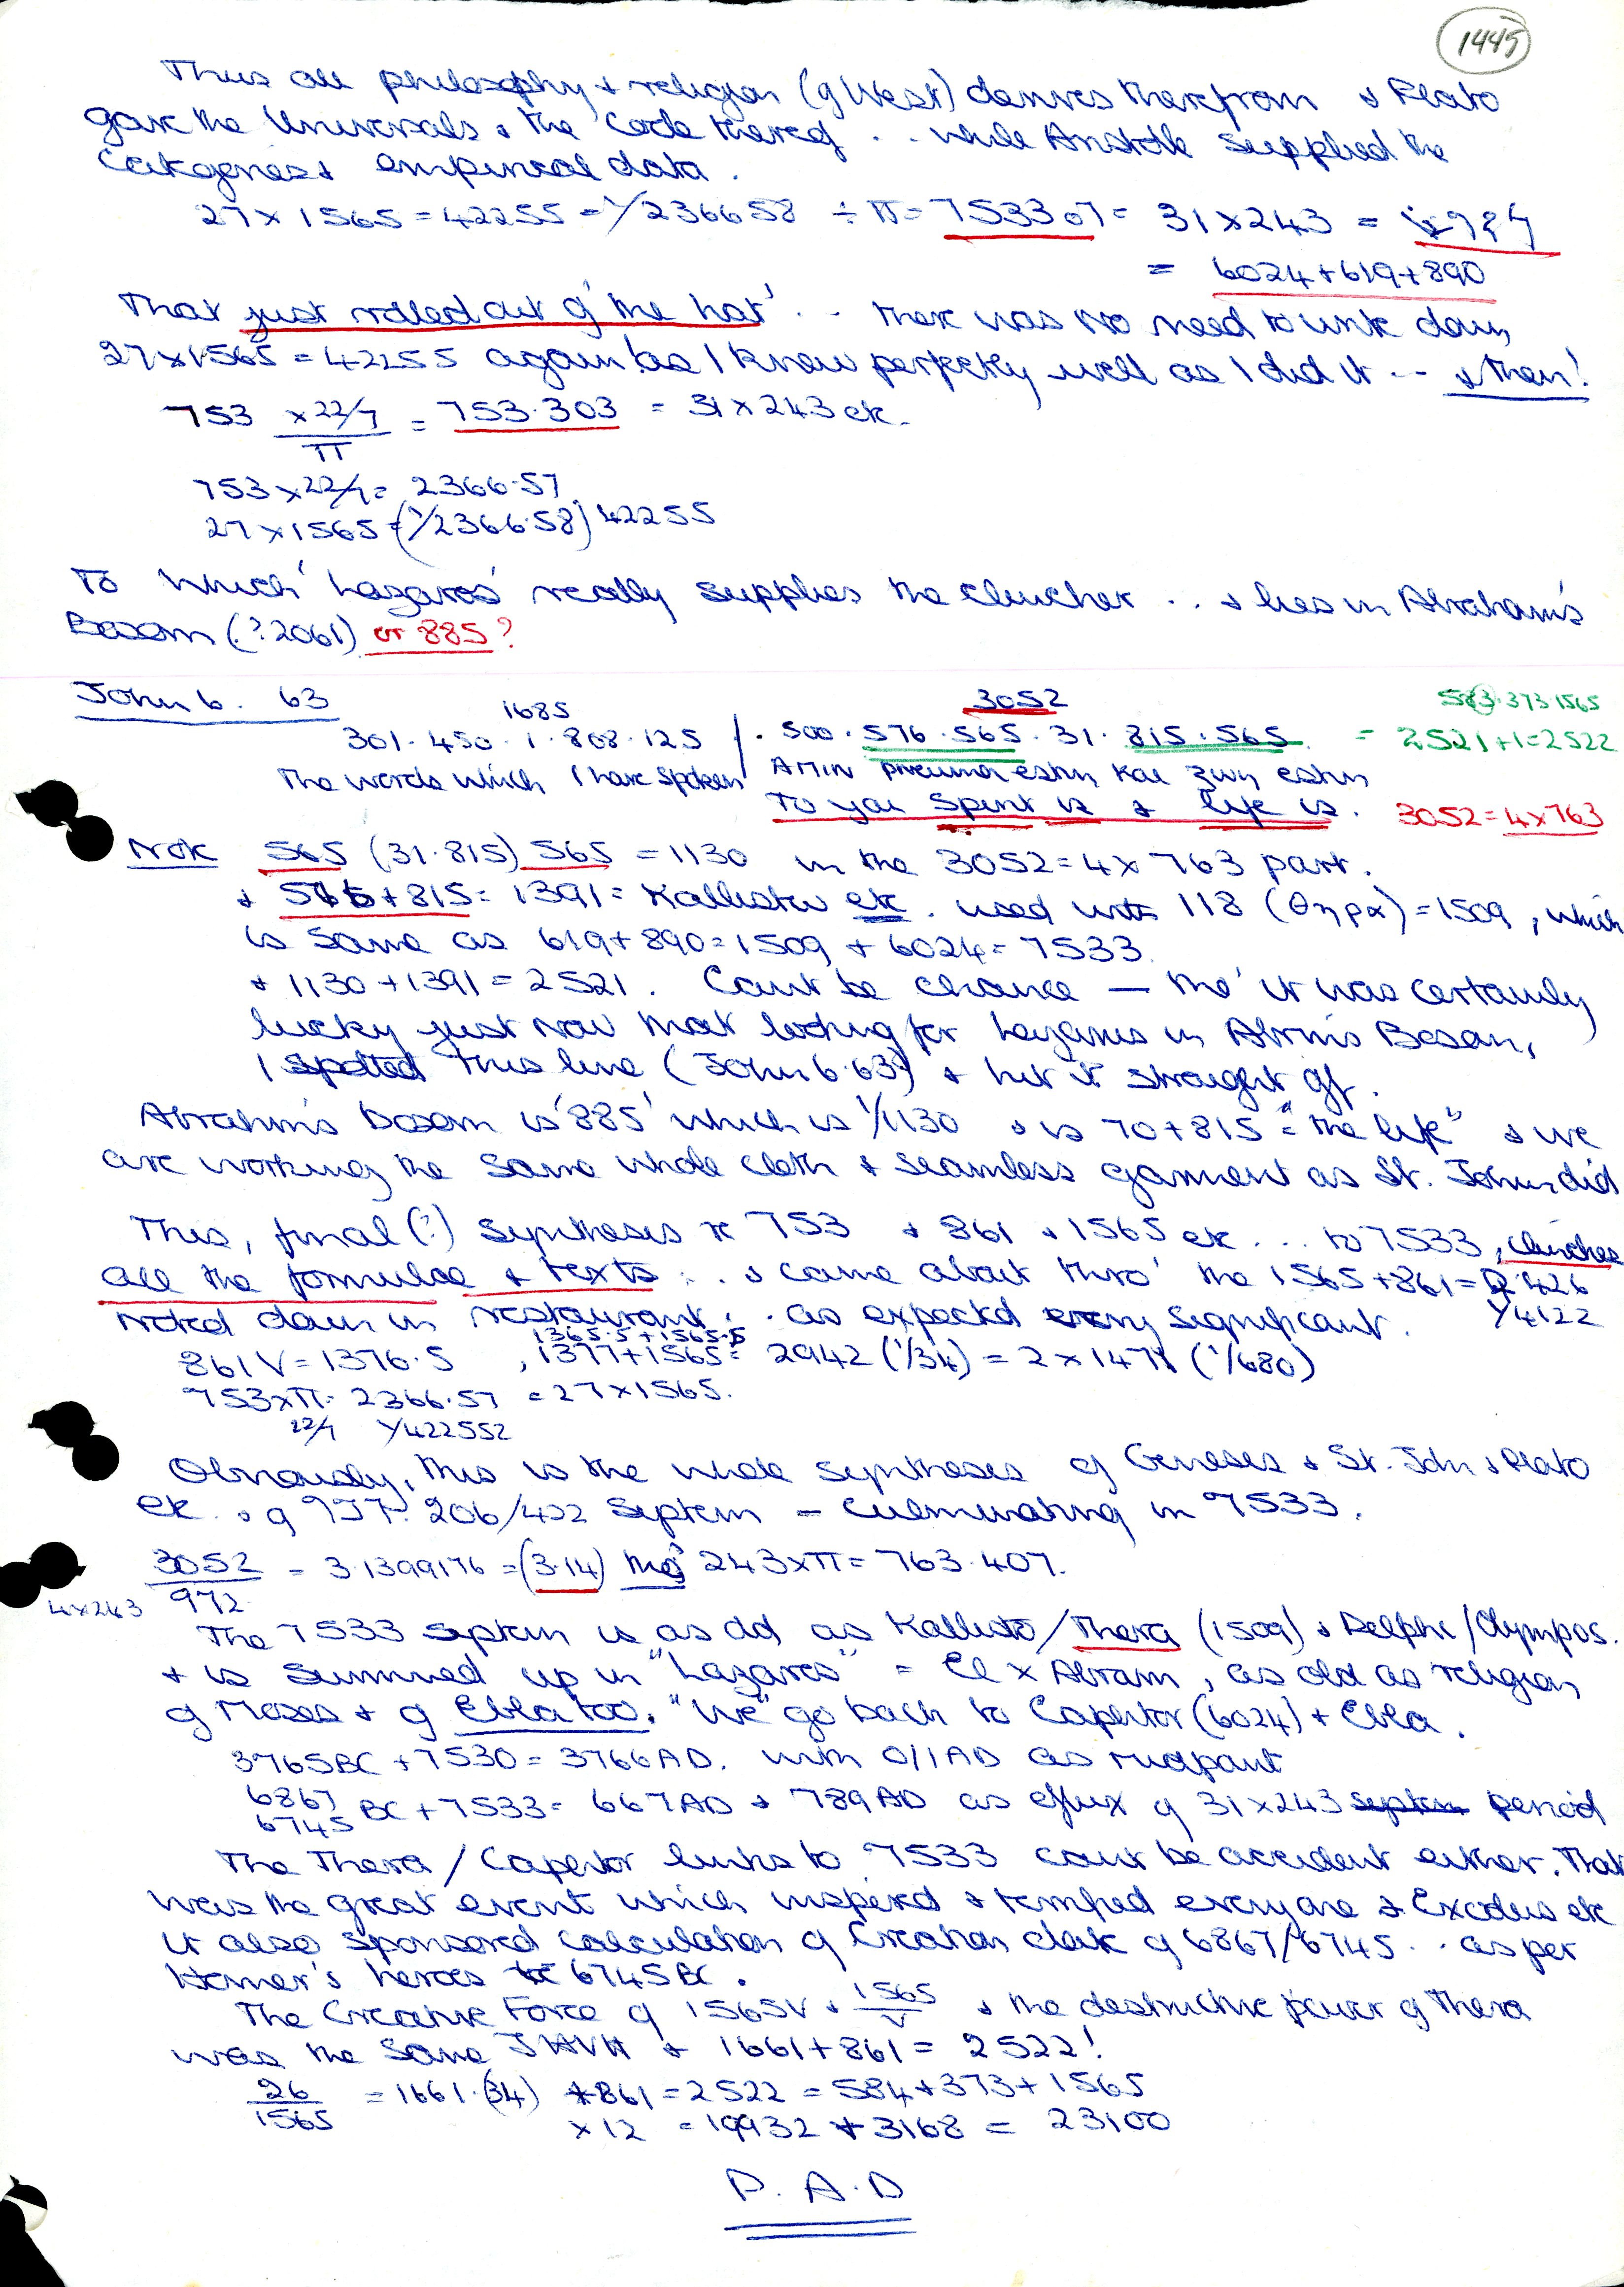 1445
Thus all philosophy & religion (of West) derives therefrom & Plato
gave the Universals & the Code thereof .. while Aristotle supplied the
Categories & empirical data.
27 x 1565 = 42255 = 1/236658 ÷ π = 753307 = 31 x 243 =
= 6024 + 619 + 890
That just rolled out of 'the hat' .. there was no need to write down
27 x 1565 = 42255 again! as I knew perfectly well as I did it .. & then!
753 x 22/7 / π = 753.303 = 31 x 243 etc.
753 x 22/7 = 2366.57
27 x 1565 = (1/2366.58) 42255
To which 'Lazaros' really supplies the clincher .. & lies in Abraham's
Bosom (?2061) or 885?
John 6. 63
1685
3052
583.373.1565
301.450.1.808.125 / . 500.576.565.31.815.565. = 2521+1=2522
The words which I have spoken / AMIN pneuma estin kai zwn estin
To you Spirit is & life is. 3052 = 4x763
Note 565 (31.815) 565 = 1130 in the 3052 = 4 x 763 part.
& 576 + 815 = 1391 = Kallistw etc. used with 118 (θηρα) = 1509, which
is same as 619 + 890 = 1509 + 6024 = 7533.
& 1130 + 1391 = 2521. Can't be chance — tho' it was certainly
lucky just now that looking for Lazarus in Abrm's Bosom,
I spotted this line (John 6.63) & hit it straight off.
Abraham's bosom is '885' which is 1/1130 & is 70+815 = "the life" & we
are working the same whole cloth & seamless garment as St. John did
This, final (?) synthesis re 753 & 861 & 1565 etc ... to 7533, clinches
all the formulae & texts .. & came about thro' the 1565 + 861 = 2426
noted down in restaurant .. as expected very significant. 1/4122
1365.5 + 1565.5
861 V = 1376.5 , 1377 + 1565 = 2942 (1/34) = 2 x 1471 (1/680)
753 x π = 2366.57 = 27 x 1565.
22/7 1/422552
Obviously, this is the whole synthesis of Genesis & St. John & Plato
etc. & of 206/422 System — culminating in 7533.
3052 / 972 = 3.1399176 = (3.14) tho' 243 x π = 763.407.
4 x 243
The 7533 system is as old as Kallisto/Thera (1509) & Delphi/Olympos.
& is summed up in "Lazaros" = El x Abram, as old as religion
of Moses & of Ebla too. "We" go back to Caphtor (6024) & Ebla.
3765 BC + 7530 = 3766 AD. with 0/1 AD as midpoint
6867
6745 BC + 7533 = 667 AD & 789 AD as efflux of 31 x 243 system period
The Thera / Caphtor links to 7533 can't be accident either. That
was the great event which inspired & terrified everyone & Exodus etc
it also sponsored calculation of Creation date of 6867/6745 .. as per
Homer's heroes 6745 BC.
The Creative Force of 1565V & 1565/V & the destructive power of Thera
was the same JHVH & 1661 + 861 = 2522!
26 / 1565 = 1661.(34) + 861 = 2522 = 584 + 373 + 1565
x 12 = 19932 + 3168 = 23100
P. A. D